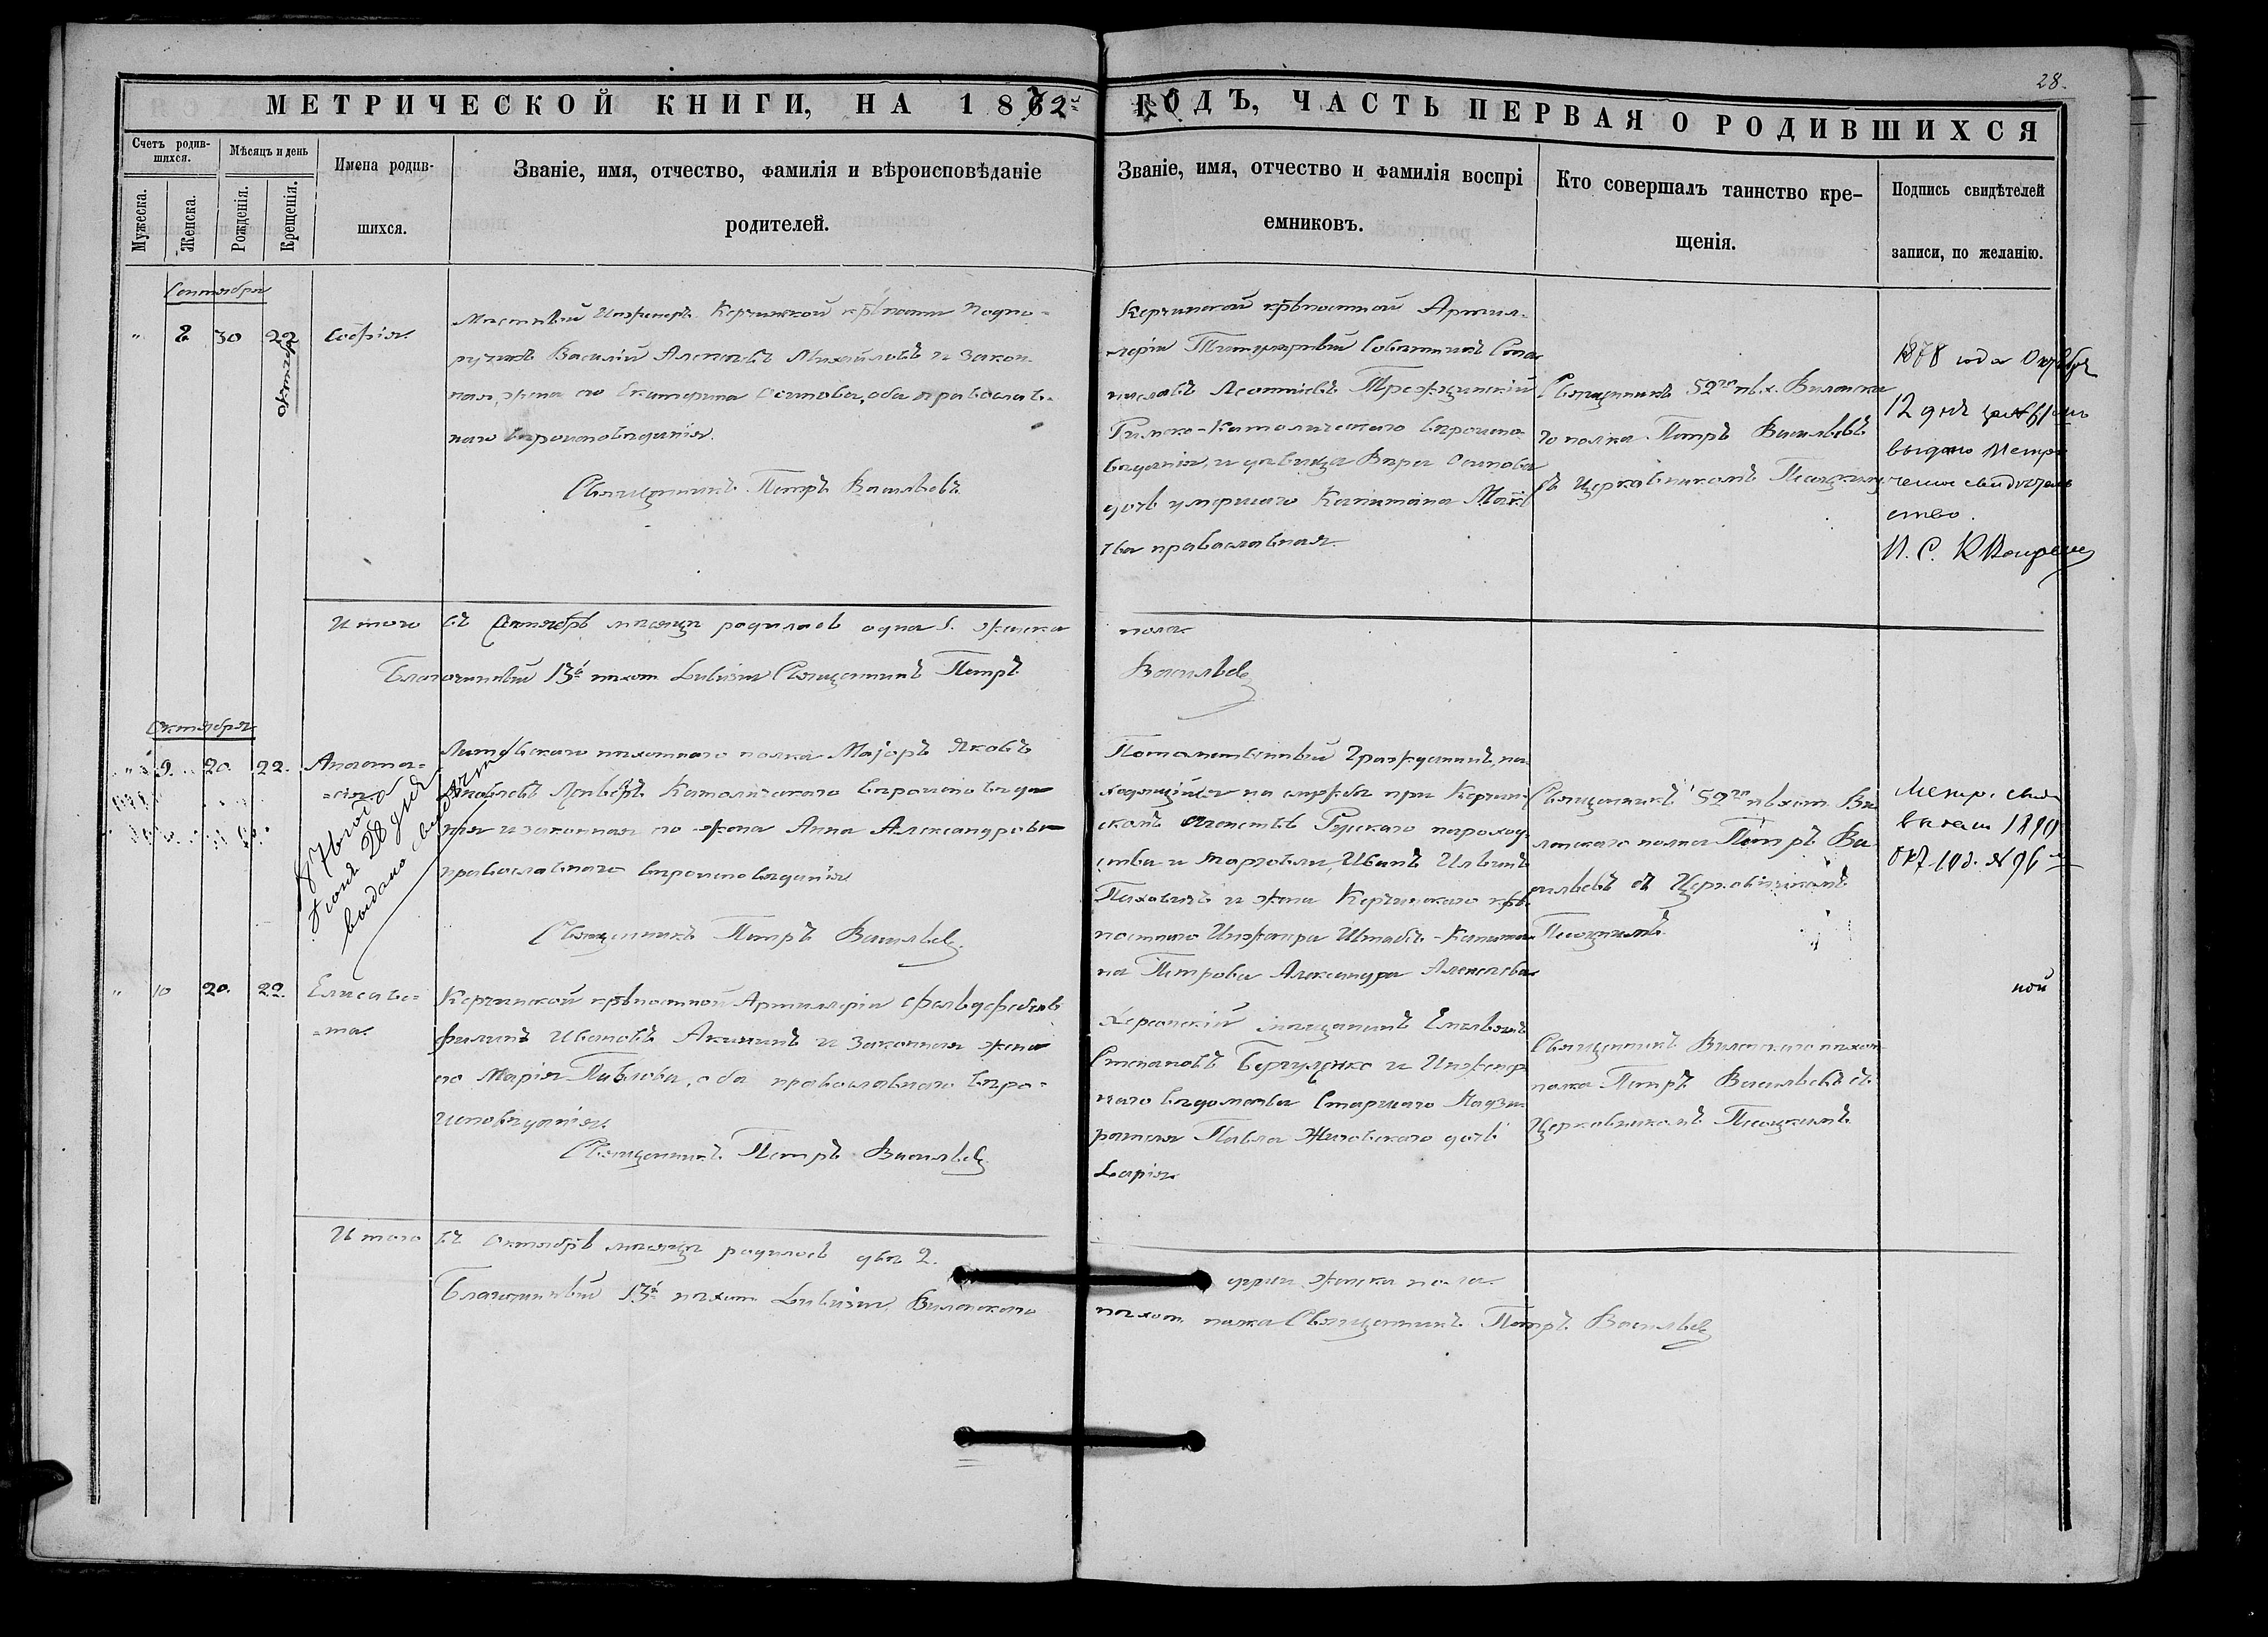 28.
МЕТРИЧЕСКОЙ КНИГИ, НА 1872 ГОДЪ, ЧАСТЬ ПЕРВАЯ О РОДИВШИХСЯ
Счетъ родив-
шихся.
Мужеска.
Женска.
Мѣсяцъ и день
Рожденія.
Крещенія.
Имена родив-
шихся.
Званіе, имя, отчество, фамилія и вѣроисповѣданіе
родителей.
Званіе, имя, отчество и фамилія воспрі
емниковъ.
Кто совершалъ таинство кре-
щенія.
Подпись свидѣтелей
записи, по желанію.
Сентября
" 8 30 22
октября
Софія.
Мѣстный Инженеръ Керченской крѣпости Подпо-
ручикъ Василій Алексѣевъ Михайловъ и закон-
ная жена его Екатерина Осипова, оба православ-
наго вѣроисповѣданія.
Священникъ Петръ Васильевъ
Керченской крѣпостной Артил-
леріи Титулярный Совѣтникъ Ста
ниславъ Леонтіевъ
Римско-Католическаго вѣроиспо-
вѣданія, и дѣвица Вѣра Осипова
дочь умершаго Капитана
православная.
Священникъ 52го пѣх. Виленска
го полка Петръ Васильевъ
съ Церковникомъ Песоцкимъ
1878 года Октября
12 дня за №
выдано Метри
ческое свидѣтель
ство.
Итого въ Сентябрѣ мѣсяцѣ родилась одна 1. женска
пола.
Благочинный 13й пѣхот. Дивизіи Священникъ Петръ
Васильевъ
Октября
" 9. 20. 22.
Анаста-
=сія.
1876 года
Іюня 28 дня
выдано
Литовскаго пѣхотнаго полка Маіоръ Яковъ
Яковлевъ Католическаго вѣроисповѣда
нія и законная его жена Анна Александрова
православнаго вѣроисповѣданія
Священникъ Петръ Васильевъ.
Потомственный Гражданинъ, на
ходящійся на службѣ при Керчен-
скомъ Агенствѣ Русскаго пароход
ства и торговли, Иванъ Ильинъ
и жена Керченскаго крѣ-
постнаго Инженера Штабсъ-Капита-
на Петрова Александра Алексѣева
Священникъ 52го пѣхот. Ви
ленскаго полка Петръ Ва
сильевъ съ Церковникомъ
Песоцкимъ.
Метр. свид
выдано 1890
Окт. 10 д. № 96
" 10 20. 22.
Елисаве-
=та.
Керченской крѣпостной Артилеріи фельдфебель
Филипъ Ивановъ Акининъ и законная жена
его Марія Павлова, оба православнаго вѣро-
исповѣданія.
Священникъ Петръ Васильевъ
Херсонскій мѣщанинъ Емельянъ
Степановъ и Инженер
наго вѣдомства Старшаго Надзи-
рателя Павла дочь
Дарія
Священникъ Виленскаго пѣхот
полка Петръ Васильевъ съ
Церковникомъ Песоцкимъ
ной
Итого въ Октябрѣ мѣсяцѣ родилось двѣ 2.
женска пола.
Благочинный 13й пѣхот. Дивизіи, Виленскаго
пѣхот. полка Священникъ Петръ Васильевъ